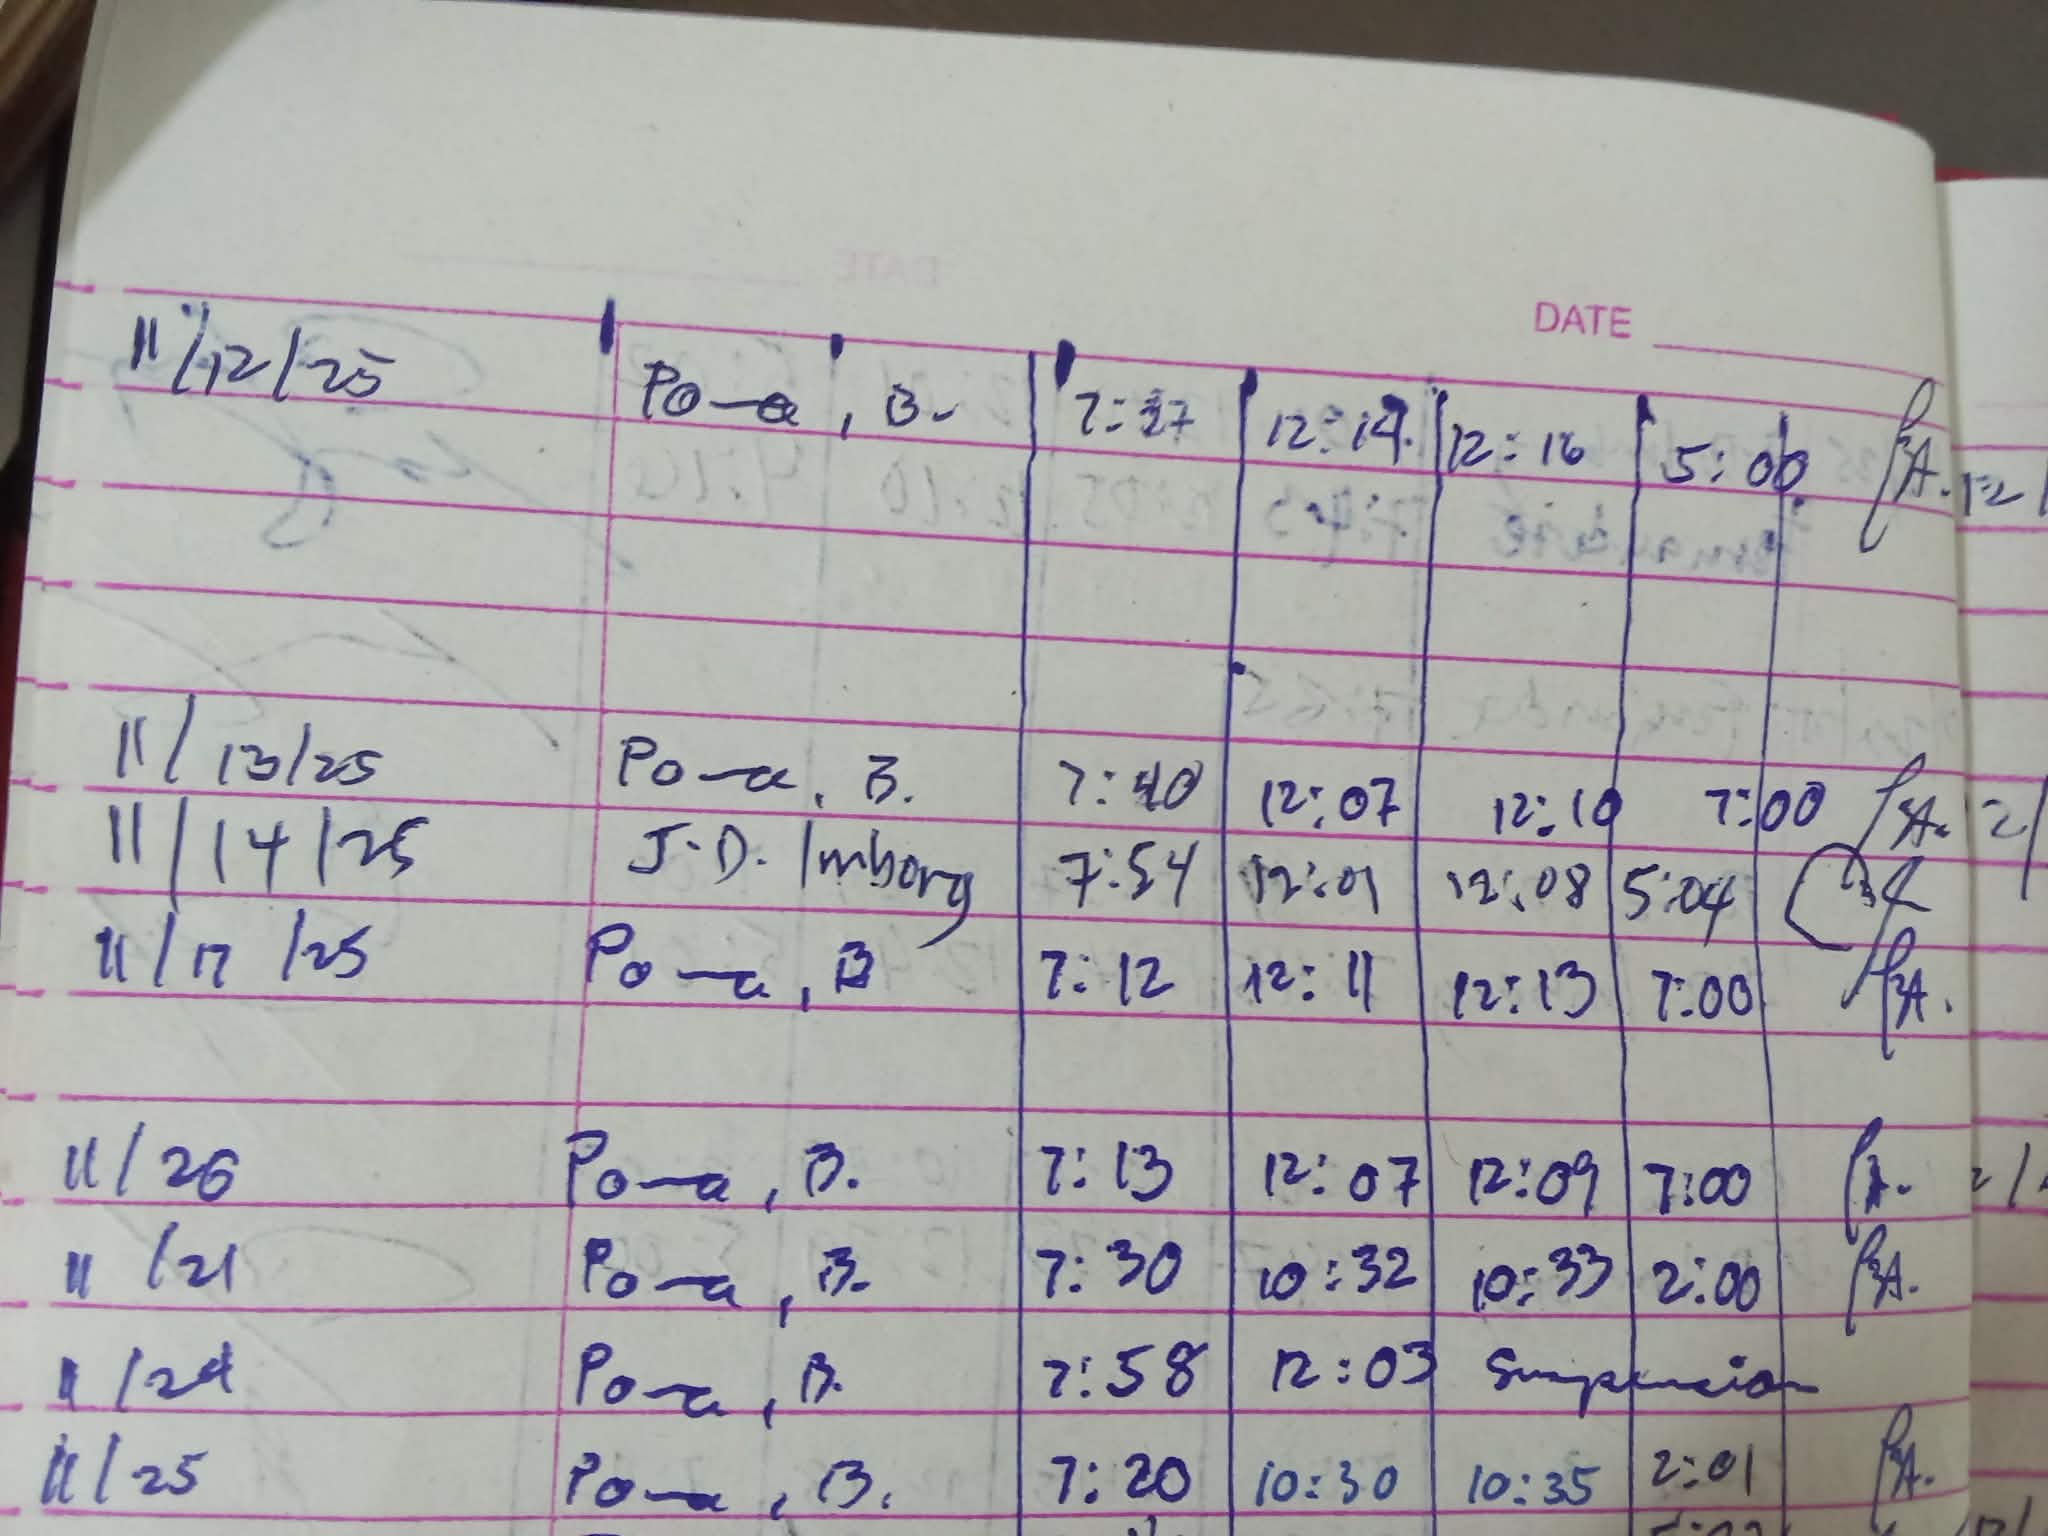 DATE
11/12/25 Po-a, B. 7:27 12:14. 12:16 5:00
11/13/25 Po-a, B. 7:40 12:07 12:10 7:00
11/14/25 J.D. Imborg 7:54 12:01 12:08 5:04
11/17/25 Po-a, B 7:12 12:11 12:13 7:00
11/20 Po-a, B. 7:13 12:07 12:09 7:00
11/21 Po-a, B. 7:30 10:32 10:33 2:00
11/24 Po-a, B. 7:58 12:03 Suspension
11/25 Po-a, B. 7:20 10:30 10:35 2:01